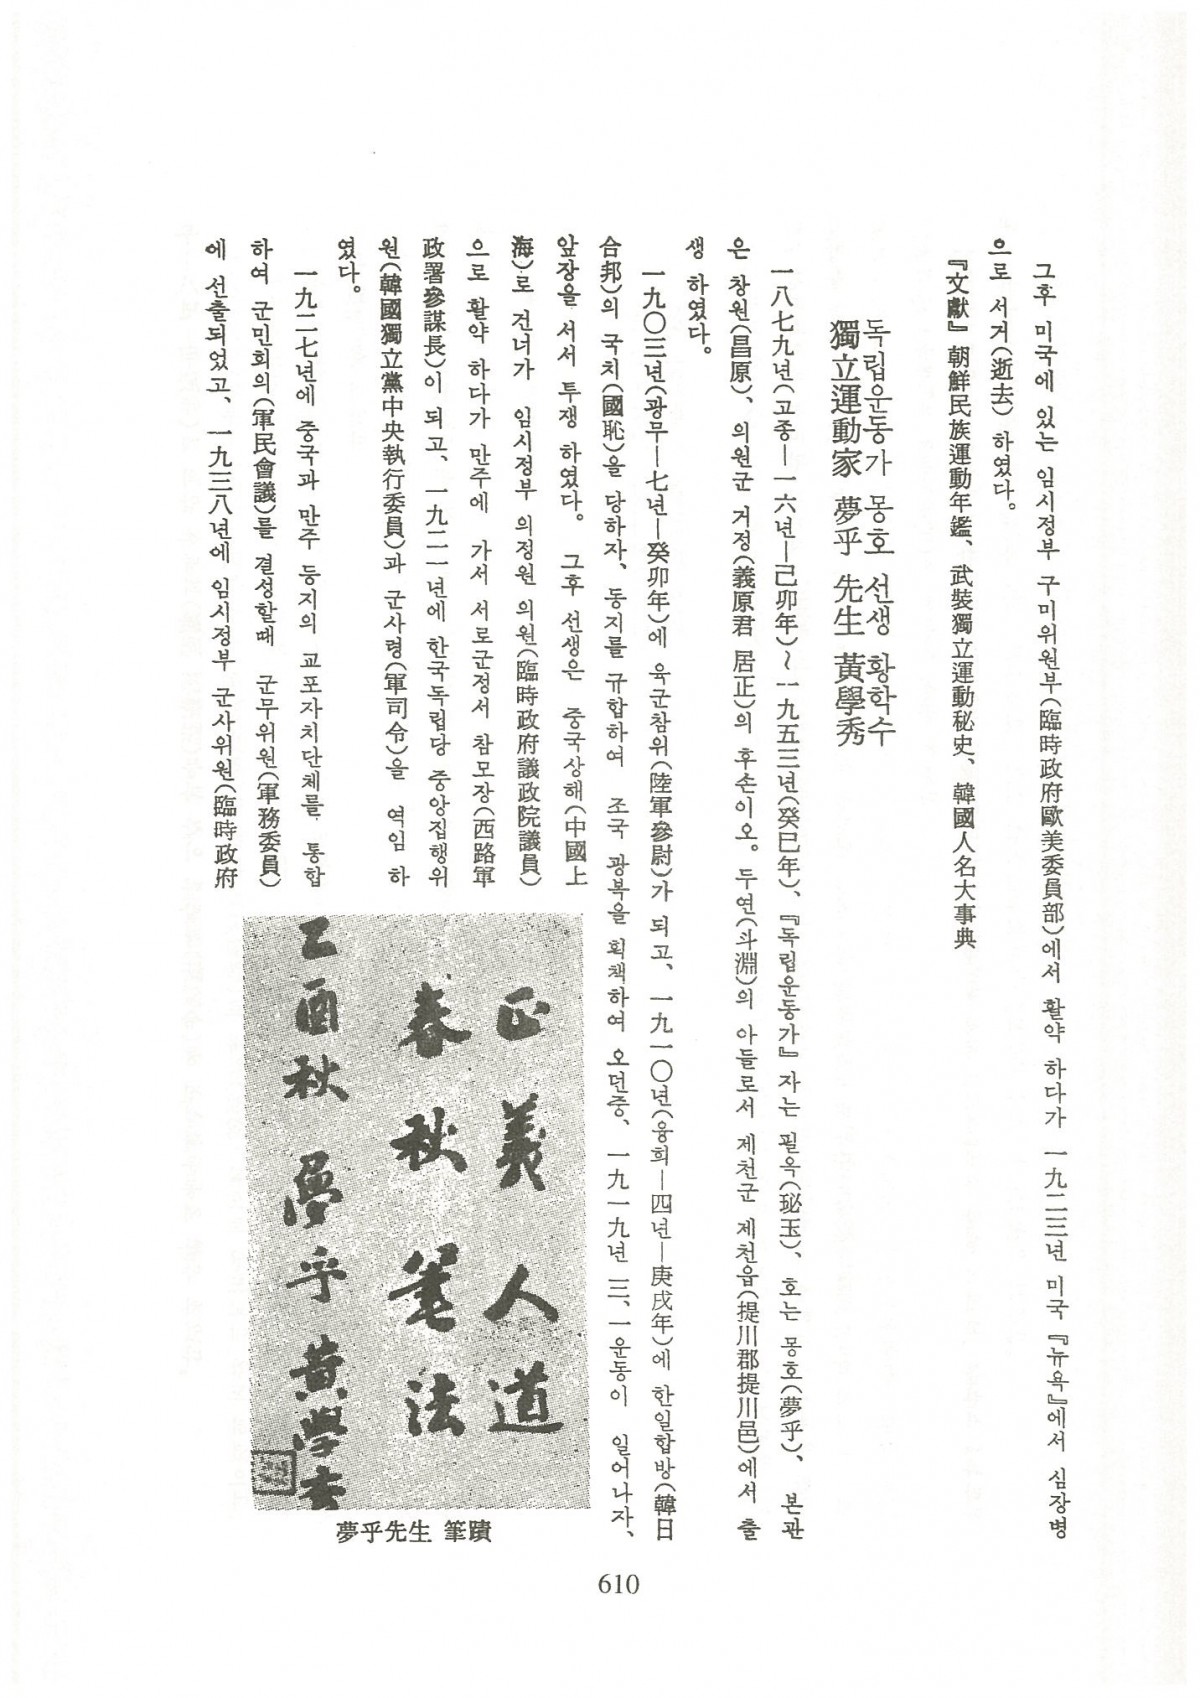 그후 미국에 있는 임시정부 구미위원부(臨時政府歐美委員部)에서 활약 하다가 一九二三년 미국 『뉴욕』에서 심장병
으로 서거(逝去) 하였다.
『文獻』 朝鮮民族運動年鑑、 武裝獨立運動秘史、 韓國人名大事典
독립운동가 몽호 선생 황학수
獨立運動家 夢乎 先生 黃學秀
一八七九년(고종—一六년—己卯年)~一九五三년(癸巳年)、 『독립운동가』 자는 필옥(珌玉)、 호는 몽호(夢乎)、 본관
은 창원(昌原)、 의원군 거정(義原君 居正)의 후손이오。 두연(斗淵)의 아들로서 제천군 제천읍(提川郡提川邑)에서 출
생 하였다。
一九〇三년(광무—七년—癸卯年)에 육군참위(陸軍參尉)가 되고、 一九一〇년(융희—四년—庚戌年)에 한일합방(韓日
合邦)의 국치(國恥)을 당하자、 동지를 규합하여 조국 광복을 획책하여 오던중、 一九一九년 三、一운동이 일어나자、
앞장을 서서 투쟁 하였다。 그후 선생은 중국상해(中國上
海)로 건너가 임시정부 의정원 의원(臨時政府議政院議員)
으로 활약 하다가 만주에 가서 서로군정서 참모장(西路軍
政署參謀長)이 되고、 一九二一년에 한국독립당 중앙집행위
원(韓國獨立黨中央執行委員)과 군사령(軍司令)을 역임 하
였다。
一九二七년에 중국과 만주 등지의 교포자치단체를 통합
하여 군민회의(軍民會議)를 결성할때 군무위원(軍務委員)
에 선출되었고、 一九三八년에 임시정부 군사위원(臨時政府
正義人道
春秋筆法
乙酉秋 夢乎 黃學秀
夢乎先生 筆蹟
610